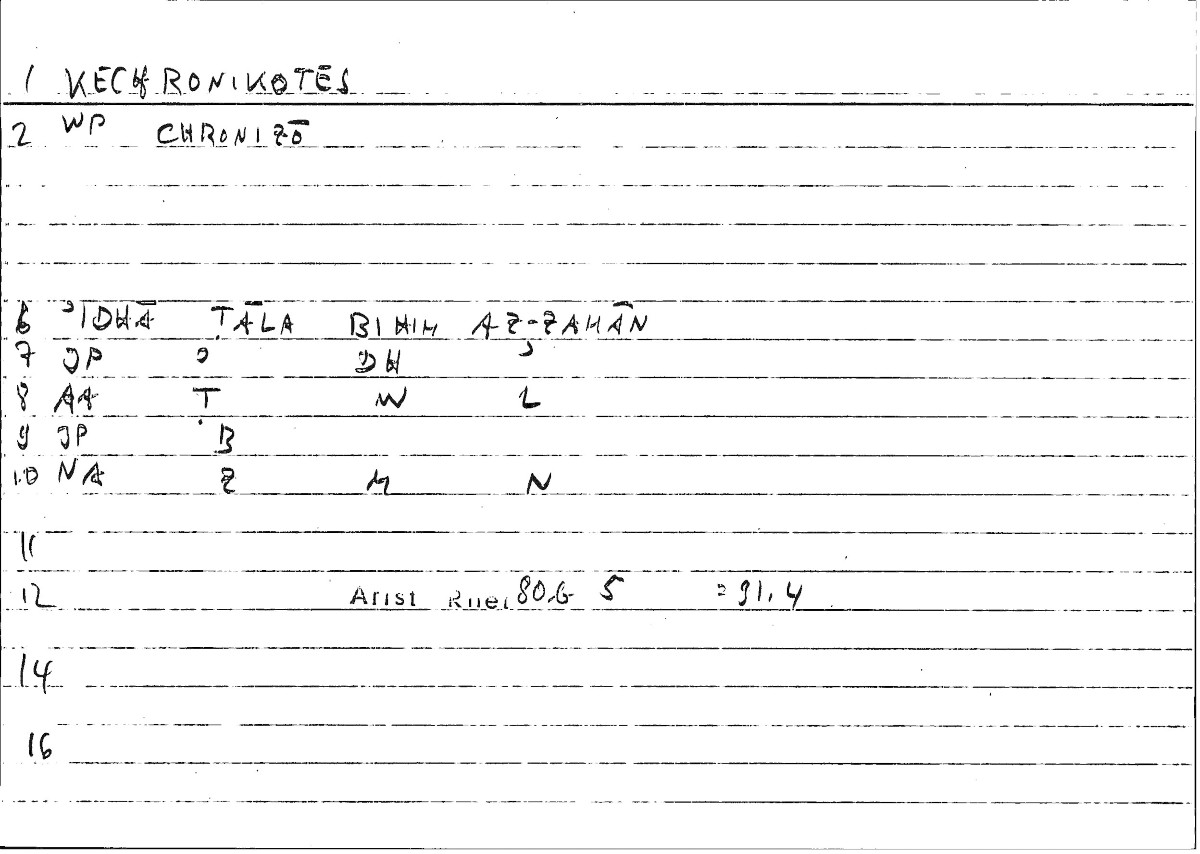 1 KECHRONIKOTĒS
2 WP CHRONIZŌ
6 ʾIDHĀ ṬĀLA BIHIM AZ-ZAHĀN
7 JP ʾ DH ʾ
8 AA Ṭ W L
9 JP B
10 NA Z M N
11
12 Arist Rhet 80b 5 = 91.4
14
16